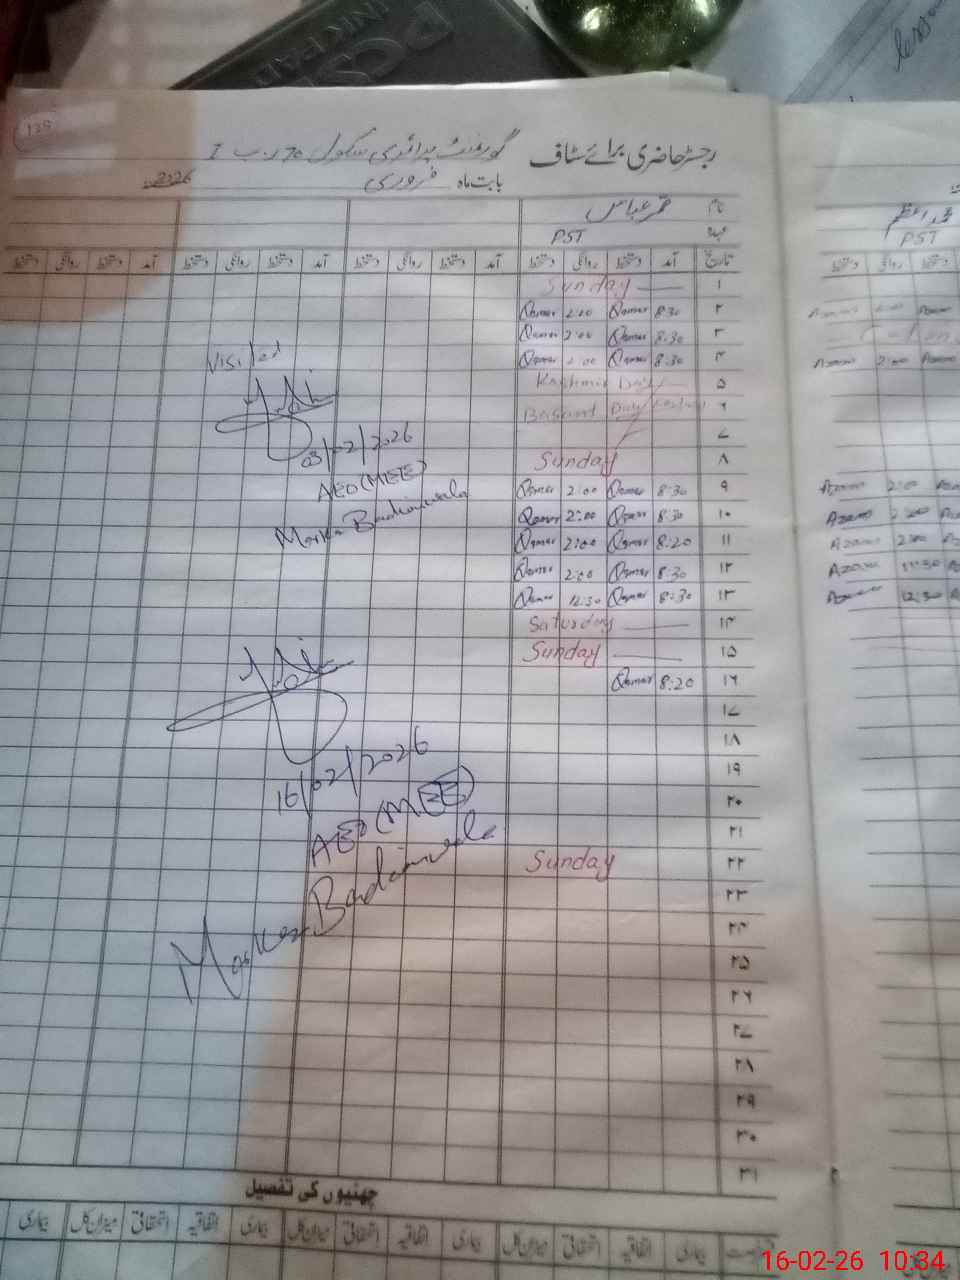 PCSI
INK PAD
135
رجسٹر حاضری برائے سٹاف گورنمنٹ پرائمری سکول 70 ر۔ب I
بابت ماہ فروری 2026
نام قمر عباس
عہدہ PST
تاریخ آمد دستخط روانگی دستخط آمد دستخط روانگی دستخط آمد دستخط روانگی دستخط آمد
۱ Sunday
۲ 8:30 Qamar 2:00 Qamar
۳ 8:30 Qamar 2:00 Qamar
۴ 8:30 Qamar 2:00 Qamar
۵ Kashmir Day
۶ Basant Day
۷
۸ Sunday
۹ 8:30 Qamar 2:00 Qamar
۱۰ 8:30 Qamar 2:00 Qamar
۱۱ 8:20 Qamar 2:00 Qamar
۱۲ 8:30 Qamar 2:00 Qamar
۱۳ 8:30 Qamar 12:30 Qamar
۱۴ Saturday
۱۵ Sunday
۱۶ 8:20 Qamar
۱۷
۱۸
۱۹
۲۰
۲۱
۲۲ Sunday
۲۳
۲۴
۲۵
۲۶
۲۷
۲۸
۲۹
۳۰
۳۱
Visited
03/02/2026
AEO (MEE)
Markaz Badianwala
16/02/2026
AEO (MEE)
Markaz Badianwala
چھٹیوں کی تفصیل
بیماری اتفاقیہ استحقاقی میزان کل بیماری اتفاقیہ استحقاقی میزان کل بیماری اتفاقیہ استحقاقی میزان کل بیماری
محمد اعظم
PST
روانگی دستخط
Azam 2:00
Azam 2:00
Azam 2:00
Azam 2:00
Azam 2:00
Azam 11:30
Azam 12:30
16-02-26 10:34